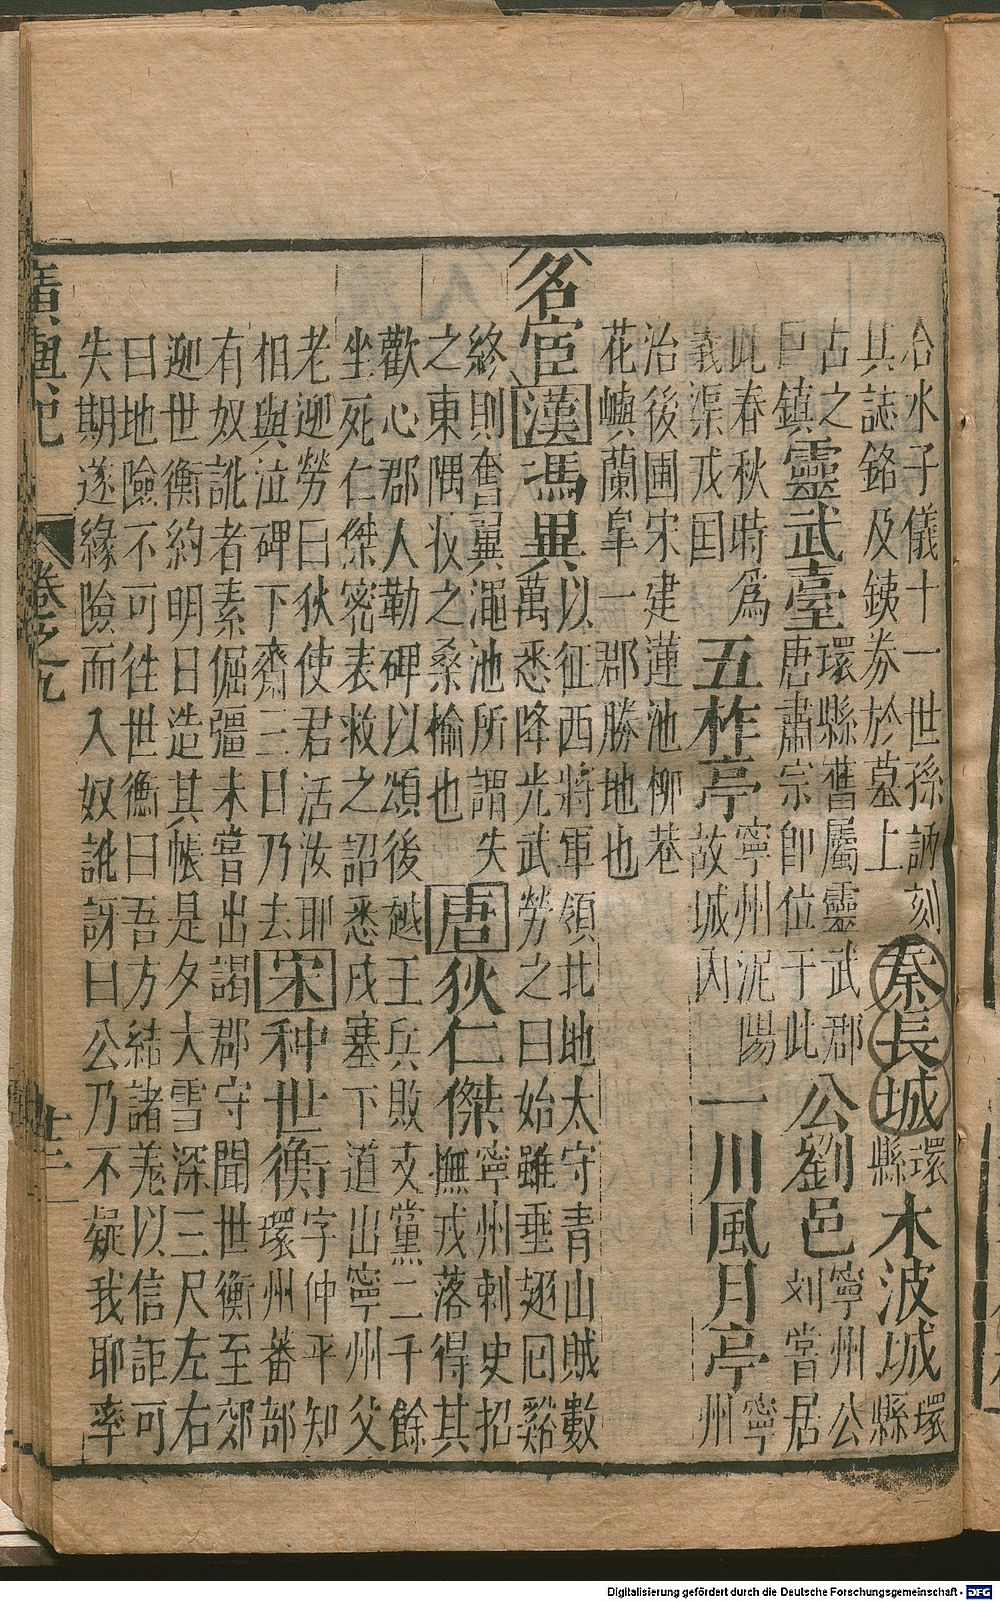 合水子儀十一世孫訥刻
其誌銘及鐵券於墓上
秦長城
環
縣
木波城
環
縣
古之
巨鎮
靈武臺
環縣舊屬靈武郡
唐肅宗即位于此
公劉邑
寧州公
刘嘗居
此春秋時爲
義渠戎国
五柞亭
寧州泥陽
故城内
一川風月亭
寧
州
治後圃宋建蓮池柳巷
花嶼蘭皐一郡勝地也
名宦
漢
馮異
以征西將軍領北地太守青山賊數
萬悉降光武勞之曰始雖垂翅回谿
終則奮翼澠池所謂失
之東隅收之桑榆也
唐
狄仁傑
寧州刺史招
撫戎落得其
歡心郡人勒碑以頌後越王兵敗支黨二千餘
坐死仁傑密表救之詔悉戍塞下道出寧州父
老迎勞曰狄使君活汝耶
相與泣碑下齋三日乃去
宋
种世衡
字仲平知
環州蕃部
有奴訛者素倔彊未嘗出謁郡守聞世衡至郊
迎世衡約明日造其帳是夕大雪深三尺左右
曰地險不可往世衡曰吾方結諸羌以信詎可
失期遂緣險而入奴訛訝曰公乃不疑我耶率
廣輿記
卷之九
Digitalisierung gefördert durch die Deutsche Forschungsgemeinschaft - DFG